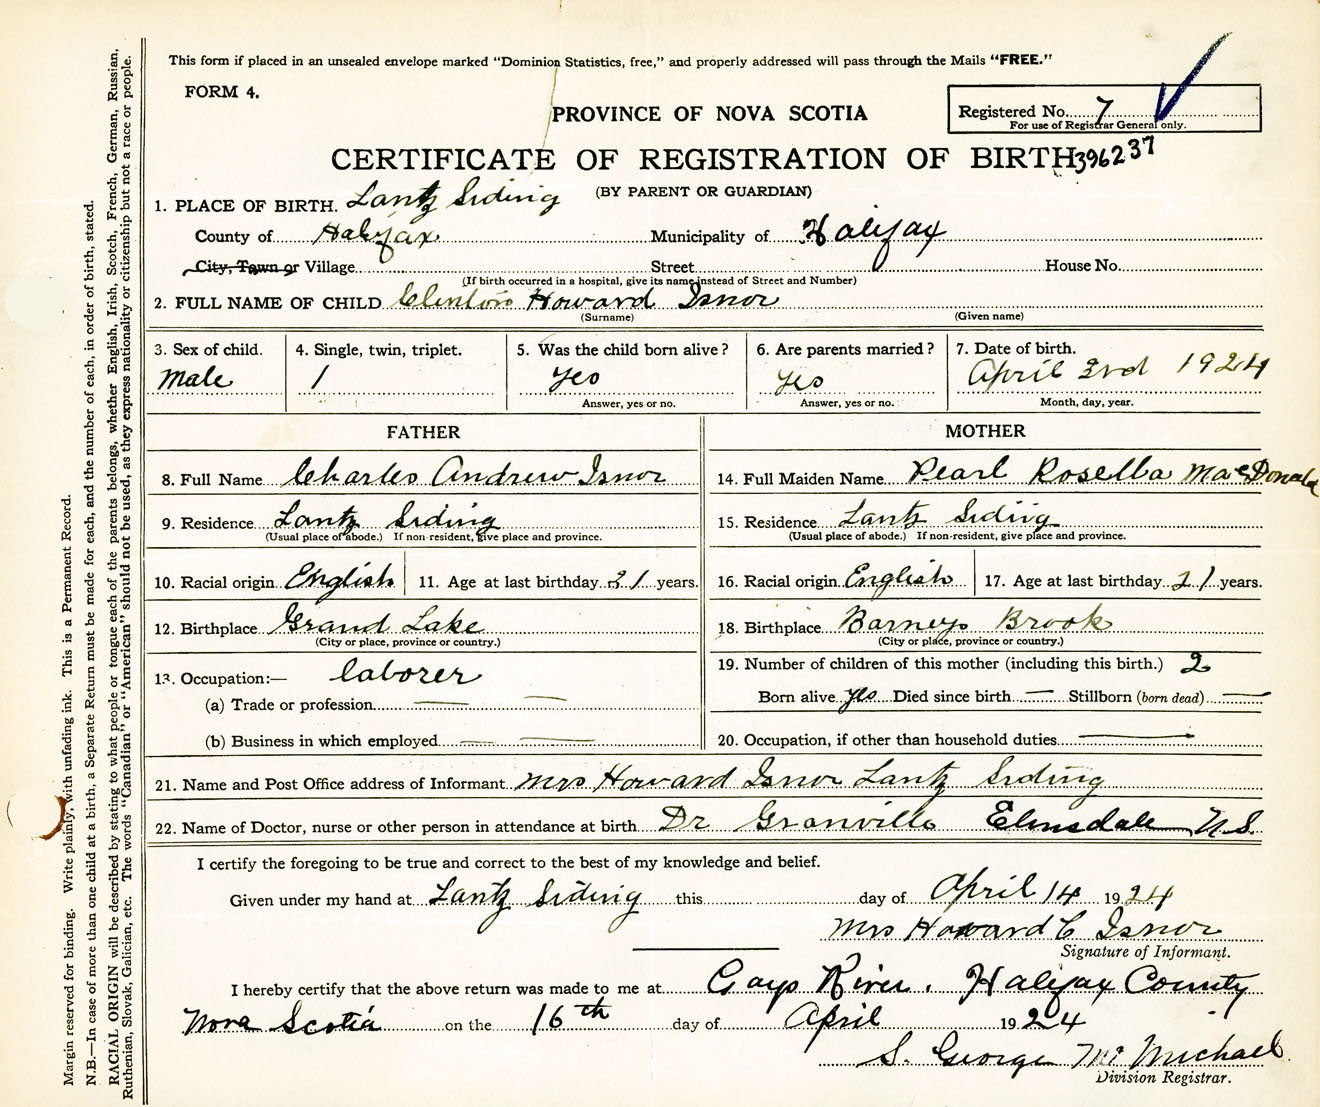 This form if placed in an unsealed envelope marked "Dominion Statistics, free," and properly addressed will pass through the Mails "FREE."
FORM 4.
PROVINCE OF NOVA SCOTIA
Registered No. 7
For use of Registrar General only.
CERTIFICATE OF REGISTRATION OF BIRTH 396237
(BY PARENT OR GUARDIAN)
1. PLACE OF BIRTH. Lantz Siding
County of Halifax Municipality of Halifax
City, Town or Village Street House No.
(If birth occurred in a hospital, give its name instead of Street and Number)
2. FULL NAME OF CHILD Clinton Howard Isnor
(Surname) (Given name)
3. Sex of child. 4. Single, twin, triplet. 5. Was the child born alive? 6. Are parents married? 7. Date of birth.
Male 1 yes yes April 3rd 1924
Answer, yes or no. Answer, yes or no. Month, day, year.
FATHER MOTHER
8. Full Name Charles Andrew Isnor 14. Full Maiden Name Pearl Rosella MacDonald
9. Residence Lantz Siding 15. Residence Lantz Siding
(Usual place of abode.) If non-resident, give place and province. (Usual place of abode.) If non-resident, give place and province.
10. Racial origin English 11. Age at last birthday 31 years. 16. Racial origin English 17. Age at last birthday 21 years.
12. Birthplace Grand Lake 18. Birthplace Barneys Brook
(City or place, province or country.) (City or place, province or country.)
13. Occupation:— laborer 19. Number of children of this mother (including this birth.) 2
(a) Trade or profession — — Born alive yes Died since birth — Stillborn (born dead) —
(b) Business in which employed — — 20. Occupation, if other than household duties —
21. Name and Post Office address of Informant Mrs Howard Isnor Lantz Siding
22. Name of Doctor, nurse or other person in attendance at birth Dr Granville Elmsdale N.S.
I certify the foregoing to be true and correct to the best of my knowledge and belief.
Given under my hand at Lantz Siding this day of April 14 1924
Mrs Howard C Isnor
Signature of Informant.
I hereby certify that the above return was made to me at Gays River, Halifax County
Nova Scotia on the 16th day of April 1924
S. George McMichael
Division Registrar.
Margin reserved for binding. Write plainly, with unfading ink. This is a Permanent Record.
N.B.—In case of more than one child at a birth, a Separate Return must be made for each, and the number of each, in order of birth, stated.
RACIAL ORIGIN will be described by stating to what people or tongue each of the parents belongs, whether English, Irish, Scotch, French, German, Russian,
Ruthenian, Slovak, Galician, etc. The words "Canadian" or "American" should not be used, as they express nationality or citizenship but not a race or people.